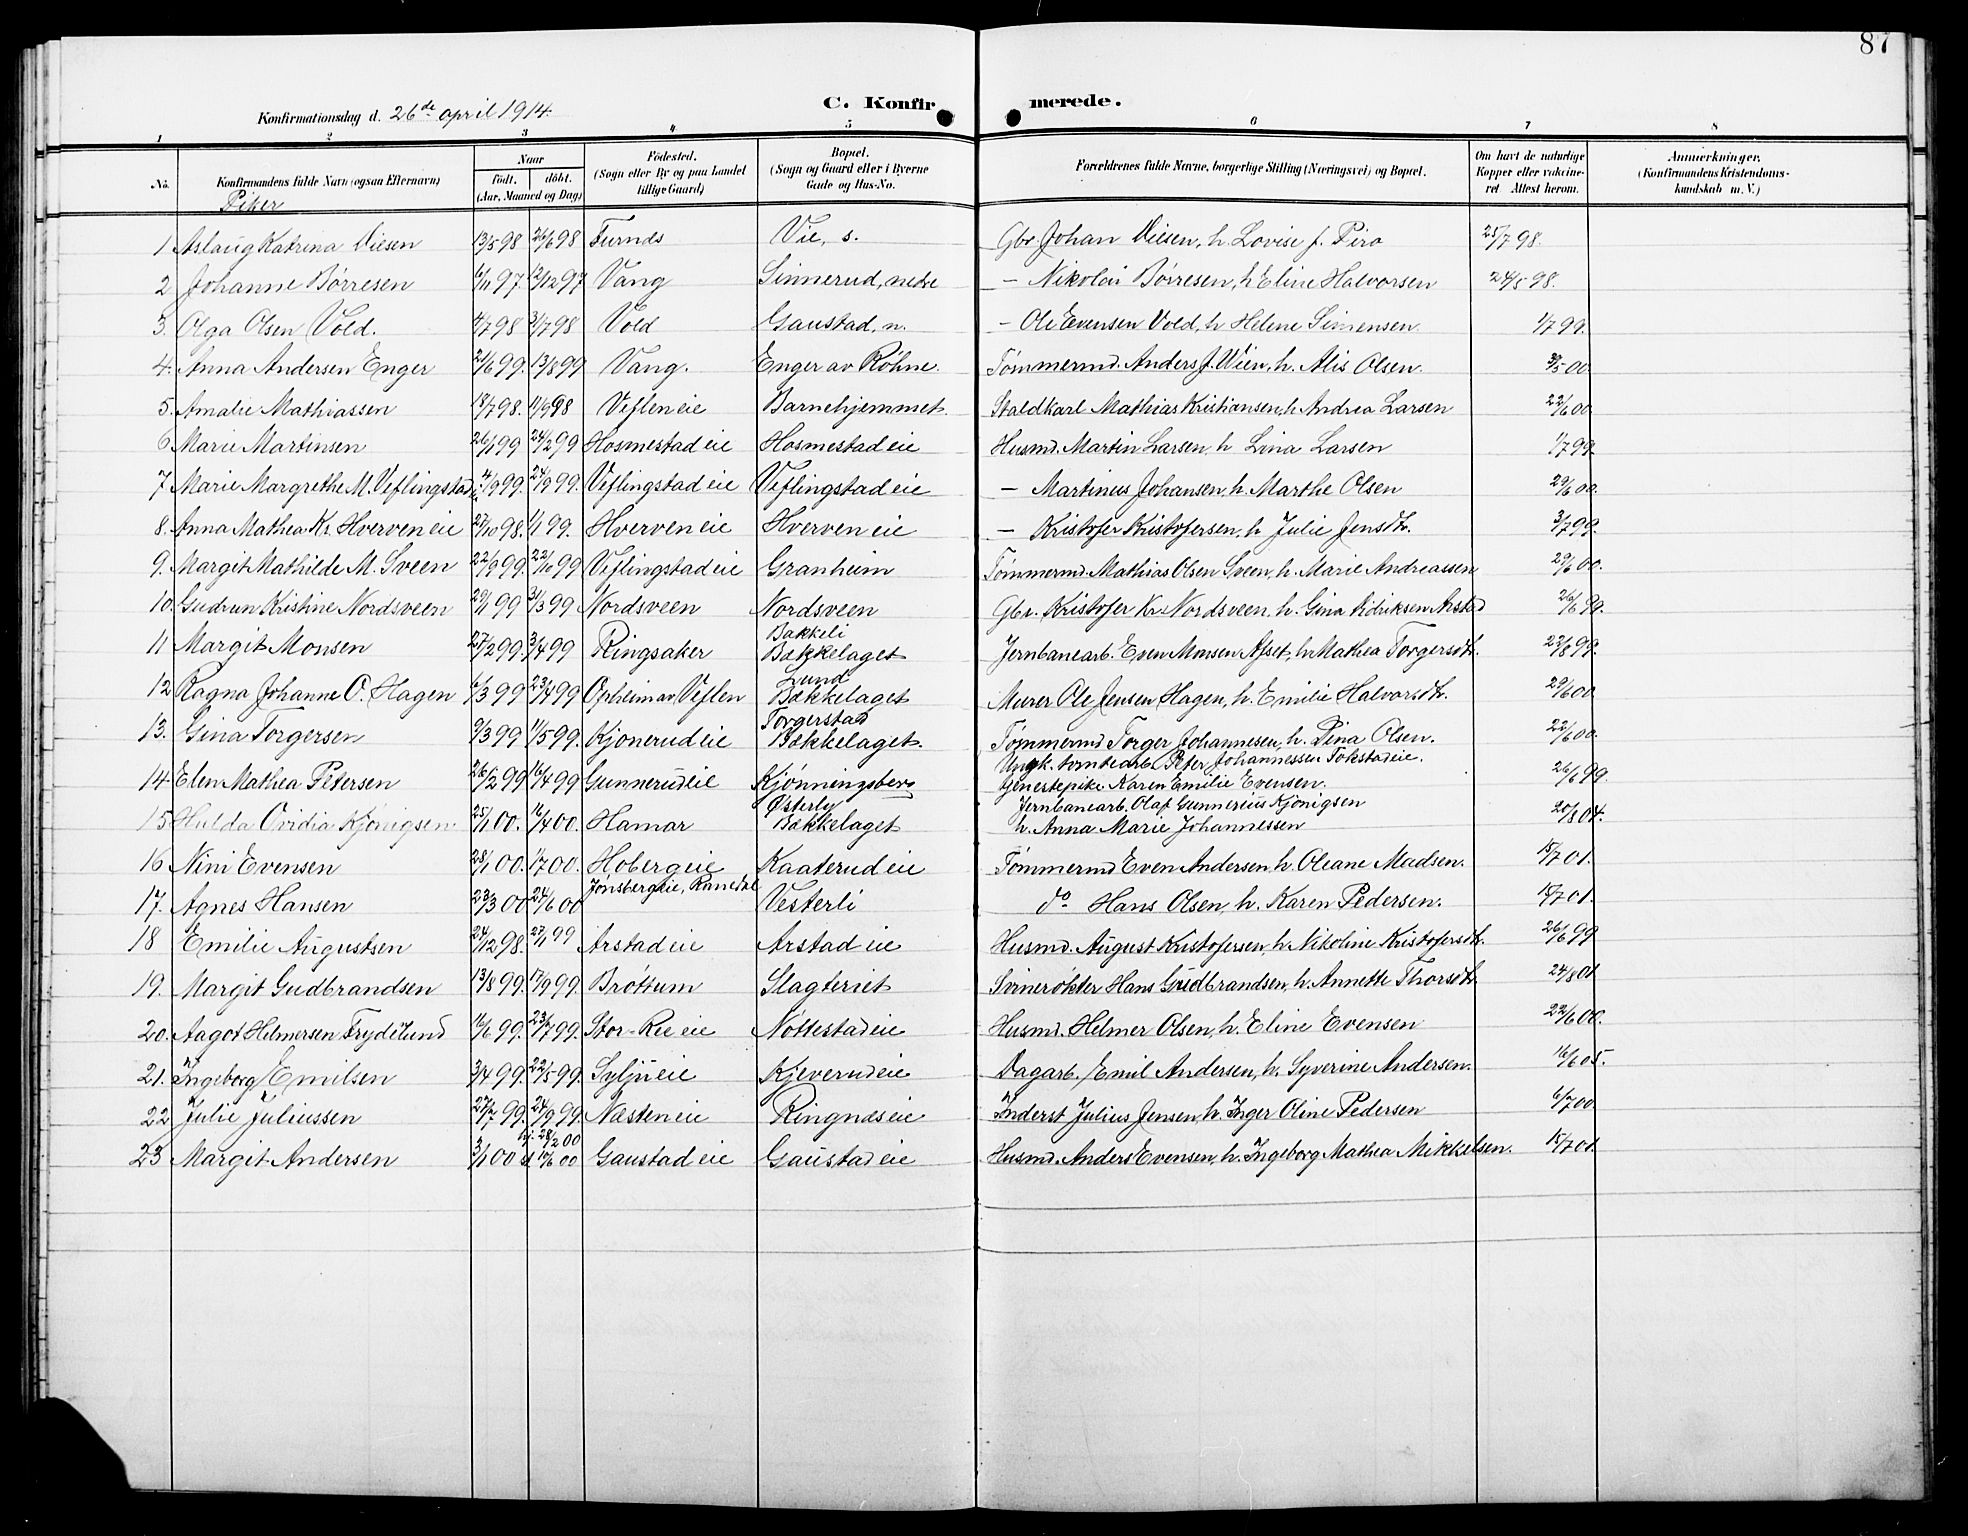 87
C. Konfirmerede.
Konfirmationsdag d. 26de april 1914.
1 2 3 4 5 6 7 8
No. Konfirmandens fulde Navn (ogsaa Efternavn) Naar født. døbt. (Aar, Maaned og Dag) Fødested. (Sogn eller By og paa Landet tillige Gaard) Bopæl. (Sogn og Gaard eller i Byerne Gade og Hus-No. Forældrenes fulde Navne, borgerlige Stilling (Næringsvei) og Bopæl. Om havt de naturlige Kopper eller vaccineret Attest herom. Anmerkninger. (Konfirmandens Kristendomskundskab m. V.)
Piker
1 Aslaug Katrina Viesen 13/5 98 26/6 98 Furnds Vie, s. Gbr. Johan Viesen, h. Lovise f. Piro 25/7 98.
2 Johanne Børresen 6/11 97. 12/12 97 Vang Sinnerud, nedre — Nikolai Børresen, h. Eline Halvorsen 24/5 98.
3. Olga Olsen Vold. 4/7 98 31/7 98 Vold Gaustad, n. — Ole Evensen Vold, h Helene Simensen. 1/7 99.
4. Anna Andersen Enger 21/6 99. 13/8 99 Vang. Enger av Röhne. Tømmermd. Anders J. Wien, h. Alis Olsen. 30/5 00.
5. Amalie Mathiassen 18/7 98. 11/9 98 Veflen eie Barnehjemmet Staldkarl Mathias Kristiansen, h. Andrea Larsen 22/6 00.
6. Marie Martinsen 26/1 99 24/2 99 Hosmestad eie Hosmestad eie Husmd. Martin Larsen, h Lina Larsen 1/7 99.
7 Marie Margrethe M. Veflingstad 4/9 99. 24/9 99. Veflingstad eie Veflingstad eie — Martinius Johansen, h. Marthe Olsen 29/6 00.
8. Anna Mathea Kr. Hverven eie 27/10 98. 1/1 99. Hverven eie Hverven eie — Kristofer Kristofersen, h Julie Jensdtr. 3/7 99.
9. Margit Mathilde M. Sveen 22/9 99. 22/10 99 Veflingstad eie Granheim Tømmermd. Mathias Olsen Sveen, h. Marie Andreassen 29/6 00.
10. Gudrun Kristine Nordsveen 29/1 99 31/3 99 Nordsveen Nordsveen Gbr. Kristofer Kr. Nordsveen, h. Gina Didriksen Arstad 26/6 99.
11 Margit Monsen 27/2 99. 3/4 99 Ringsaker Bakkeli Bækkelaget Jernbanearb. Even Monsen Afset, h. Mathea Torgersdtr. 22/8 99.
12 Ragna Johanne O. Hagen 6/3 99 23/4 99 Opheim av Veflen Lund Bækkelaget Murer Ole Jensen Hagen, h. Emilie Halvorsdtr. 29/6 00.
13. Gina Torgersen 9/3 99 11/5 99. Kjonerud eie Torgerstad Bækkelaget. Tømmermd Torger Johannesen, h. Pina Olsen. 22/6 00.
14 Elen Mathea Petersen 26/2 99 16/4 99 Gunnerud eie Kjønningsberg Ungk. tomtearb. Peter Johannessen Tokstad eie. Genestepike Karen Emilie Evensen. 26/6 99.
15 Hulda Ovidia Kjønigsen. 25/1 00. 16/4 00. Hamar Østerly Bækkelaget Jernbanearb. Olaf Gunnerius Kjønigsen h. Anna Marie Johannessen 20/8 04.
16 Nini Evensen 28/1 00. 1/7 00. Hoberg eie Kaaterud eie Tømmermd Even Andersen, h. Oleane Madsen. 15/7 01.
17. Agnes Hansen 23/3 00 24/6 00 Jønsberg eie, Romedal Vesterli do Hans Olsen, h. Karen Pedersen. 15/7 01.
18 Emilie Augustsen 24/12 98. 27/11 99 Arstad eie Arstad eie Husmd. August Kristofersen, h. Nikoline Kristofersdtr. 26/6 99
19. Margit Gudbrandsen 13/8 99. 17/9 99. Brøttum Slagteriet Svinerøkter Hans Gudbrandsen, h. Annette Thorsdtr. 24/8 01
20. Aagot Helmersen Frydelund 16/6 99. 23/7 99. Stor-Ree eie Nøttestad eie Husmd. Helmer Olsen, h. Eline Evensen 22/6 00.
21. Ingeborg Emilsen 3/4 99. 22/5 99. Sylju eie Kjeverud eie Dagarb. Emil Andersen, h. Syverine Andersen. 16/6 05.
22 Julie Juliussen 27/7 99. 24/9 99. Næsten eie Ringnæs eie Inderst Julius Jensen, h. Inger Oline Pedersen 6/7 00.
23 Margit Andersen 3/1 00 hj. 28/2 00 d. 10/6 00 Gaustad eie Gaustad eie Husmd. Anders Evensen, h. Ingeborg Mathea Mikkelsen. 15/7 01.